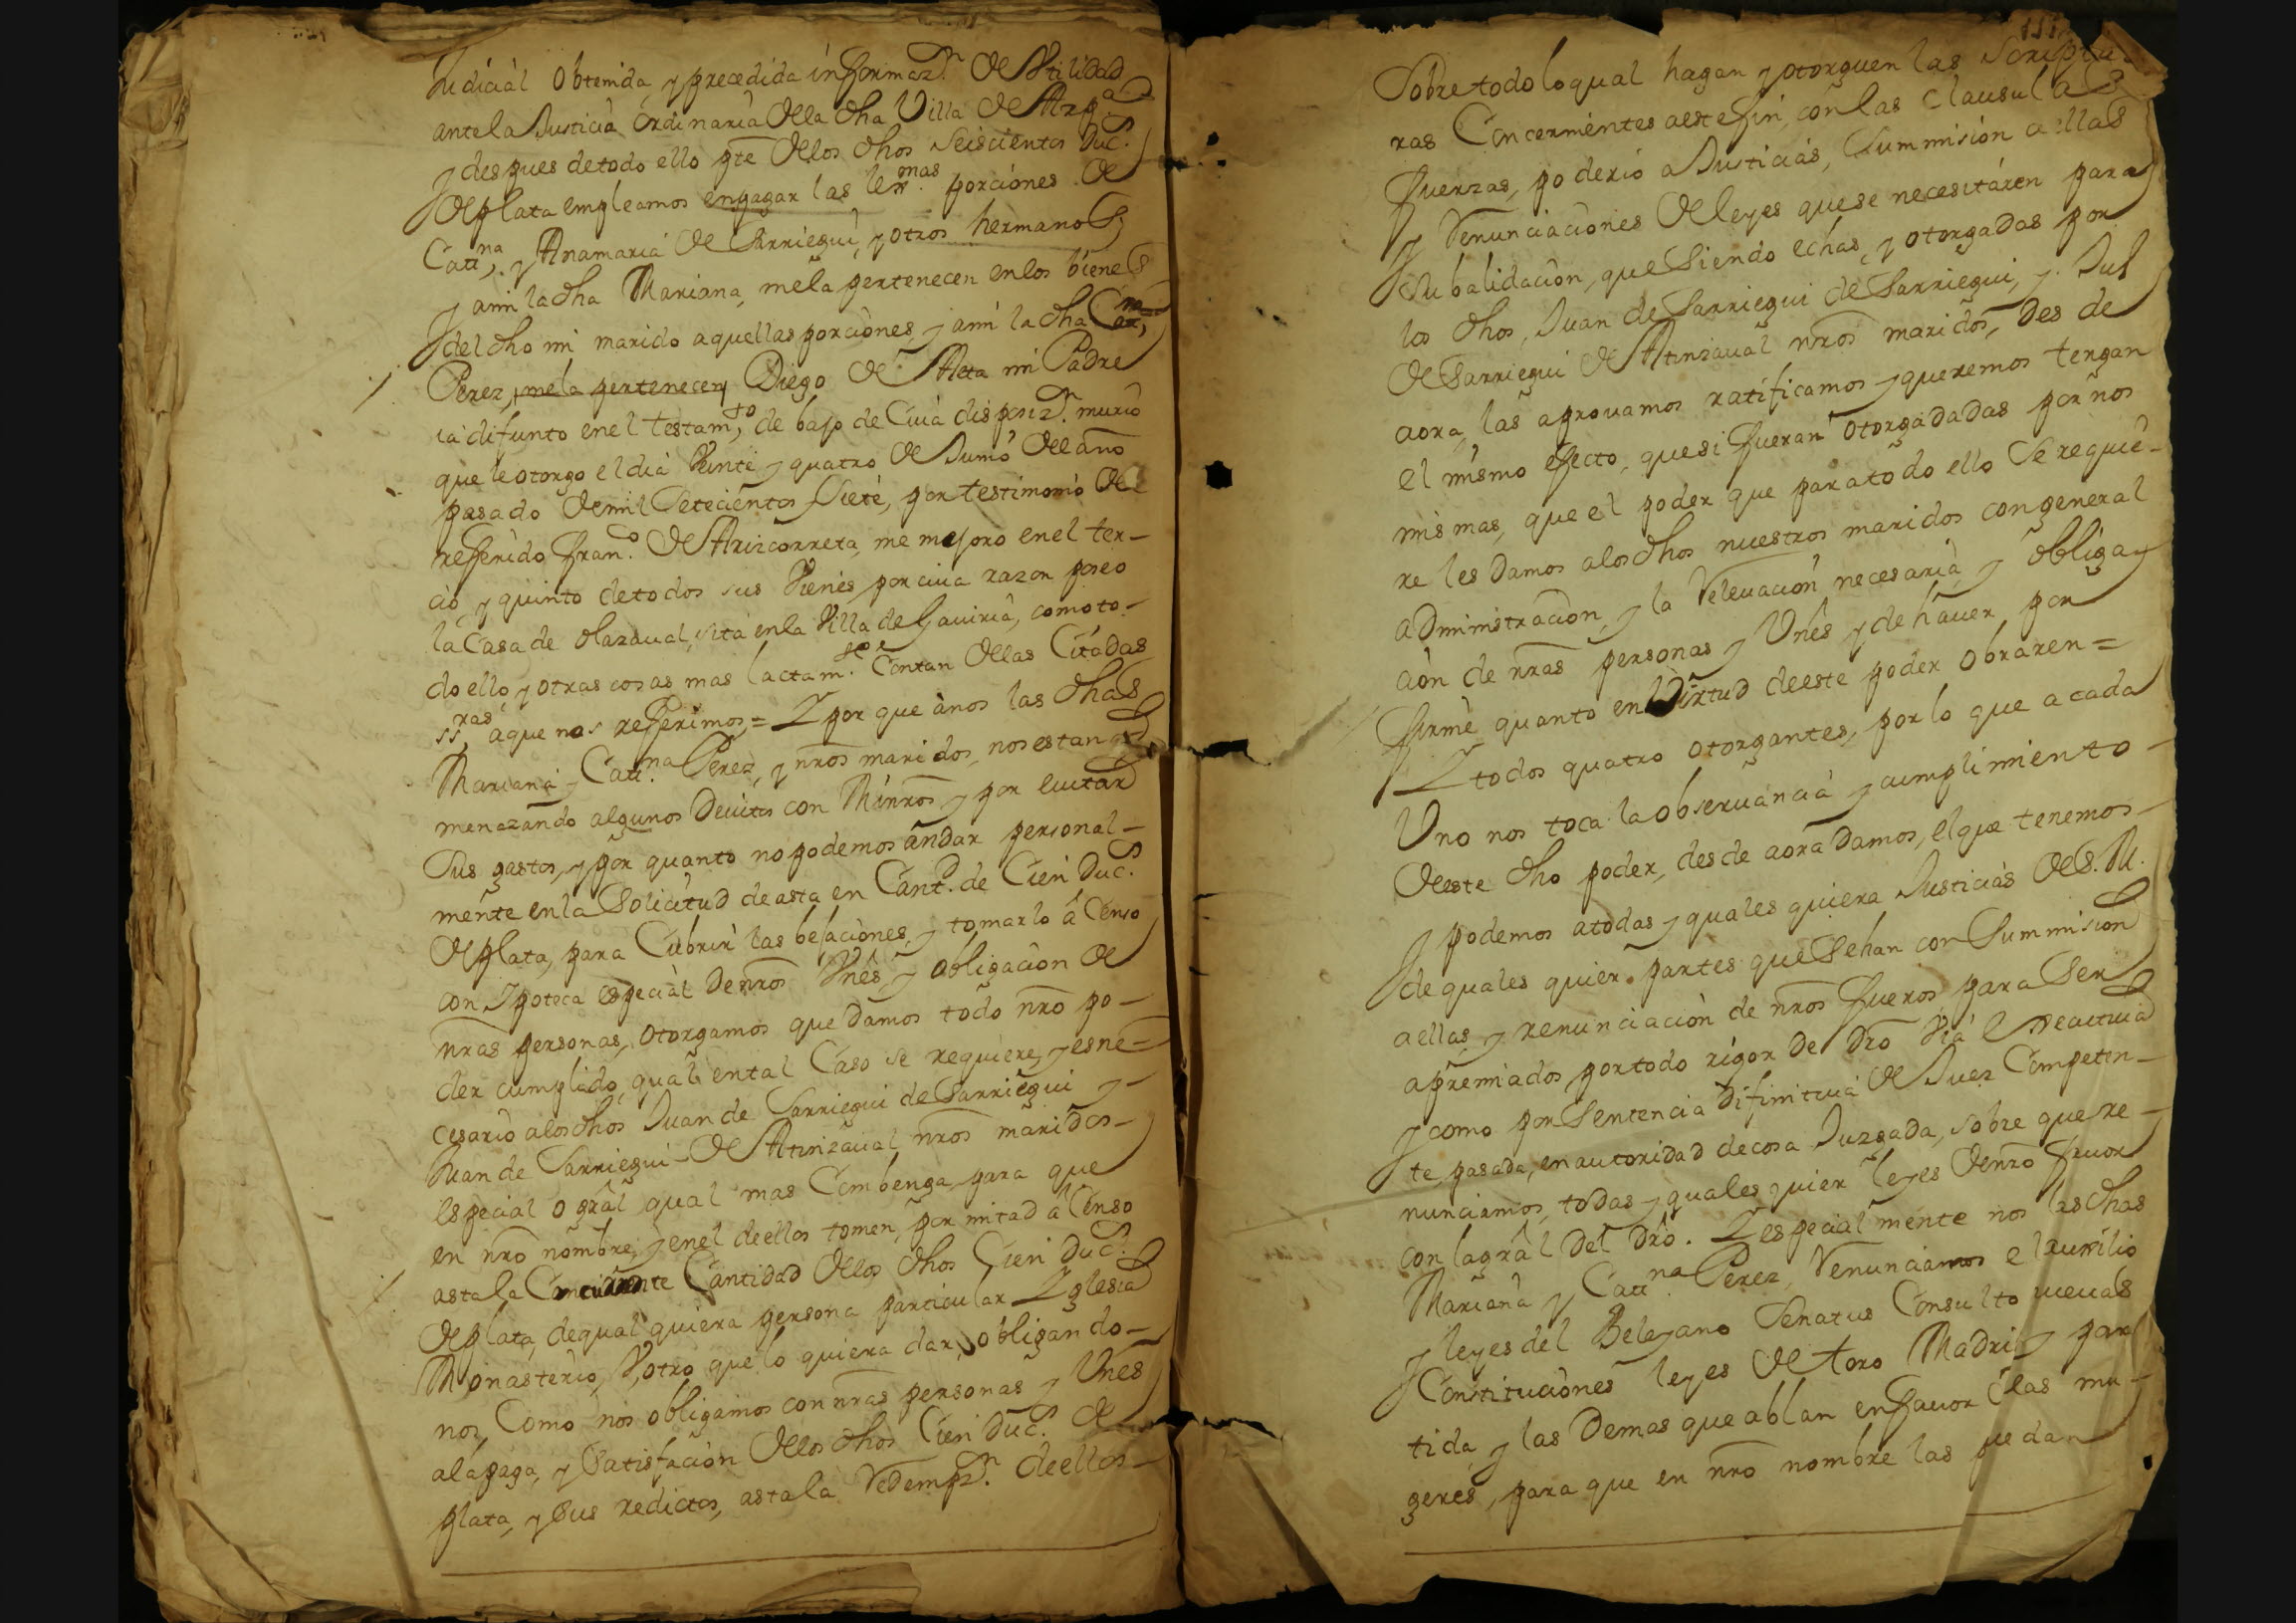 Judicial obtenida, y precedida informaz.n de Utilidad
ante la Justicia ordinaria de la dha Villa de Azp.a
y despues de todo ello pte de los dhos Seiscientos Duc.s
de plata empleamos en pagar las lex.mas porciones de
Cat.na, y Anamaria de Sarriegui, y otros hermanos
y ami la dha Mariana, me la pertenecen en los bienes
del dho mi marido aquellas porciones, y ami la dha
Perez, me la pertenecen Diego de Aleta mi Padre
ia difunto en el testam.to, de bajo de Cuia disposiz.n murio
que le otorgo el dia Vinte y quatro de Junio del año
pasado de mil Setecientos y Siete, por testimonio de
referido Fran.o de Arizcorreta, me mejoro en el ter-
cio, y quinto de todos sus Vienes, por cuia razon poseo
la Casa de olazaual, sita en la Villa de Gauiria, como to-
do ello, y otras cosas mas lactam.te Contan de las Citadas
ss.ras, aque nos referimos, = Y por que ànos las dhas
Mariana y Cat.na Perez, y nros maridos, nos estan a
menazando algunos Deuitos con Minros y por euitar
Sus gastos, y por quanto no podemos andar personal-
mente en la Solicitud de asta en Cant.d de Cien Duc.s
de plata, para Cubrir las bejaciones, y tomarlo â Censo
con Ypoteca especial de nros Vnês, y obligacion de
nras personas, otorgamos que damos todo nro po-
der cumplido, qual en tal Caso se requiere, y es ne-
cesario a los dhos Juan de Sarriegui de Sarriegui y-
Juan de Sarriegui de Atinzaual nros maridos-
Especial o gràl qual mas Combenga, para que
en nro nombre, y en el de ellos tomen, por mitad a Censo
asta la Cantidad de los dhos Cien Duc.s
de plata, de qual quiera persona particular Yglesia
Monasterio, Votro que lo quiera dar, obligando-
nos, Como nos obligamos con nras personas y Vnês
a la paga, y Satisfacion de los dhos Cien Duc.s de
plata, y Sus redictos, asta la Redempz.n de ellos-
Sobre todo lo qual hagan y otorguen las Scriptu-
ras Concernientes a este fin, con las Clausulas
fuerzas, poderio a Justicias, Summision a ellas
y Renunciaciones de leyes que se necesitáren para
Su balidacion, que Siendo echas, y otorgadas por
los dhos, Juan de Sarriegui de Sarriegui, y Juº
de Sarriegui de Atinzaual nros maridos, des de
aora, las aprouamos ratificamos y queremos tengan
el mismo efecto, que si fueran otorgadadas por nos
mismas, que el poder que para todo ello Se requie-
re les Damos a los dhos nuestros maridos con general
administracion, y la Releuacion necesaria, y obliga-
cion de nras personas y Vnês y de hauer por
firme quanto en Virtud de este poder obraren=
Y todos quatro otorgantes, por lo que a cada
Uno nos toca la observancia y cumplimiento-
de este dho poder, desde aora Damos, el que tenemos-
y podemos a todas y quales quiera Justicias de S. M.
de quales quier partes que Sehan con Summision
a ellas, y renunciacion de nros fueros para Ser
apremiados por todo rigor De Dro Via executiua
y como por Sentencia Difinitiua de Juez Competen-
te, pasada, en autoridad de cosa Juzgada, sobre que re-
nunciamos, todas y quales quier leyes de nro fauor
con la gràl Del Dro. Y especial mente nos las dhas
Mariana y Cat.na Perez, Renunciamos el auxilio
y leyes del Belejano Senatus Consulto nueuas
Constituciones leyes de toro Madrid y par
tida, y las Demas que ablan en fauor de las mu-
geres, para que en nro nombre las puedan